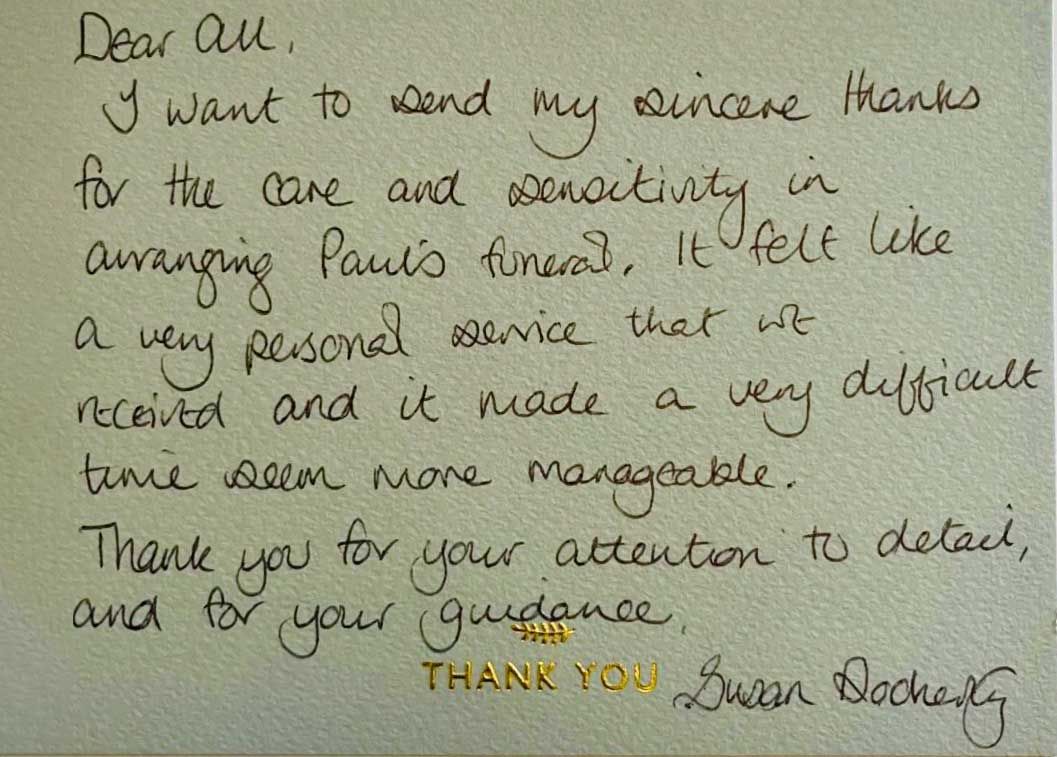 Dear All,
I want to send my sincere thanks
for the care and sensitivity in
arranging Paul's funeral. It felt like
a very personal service that we
received and it made a very difficult
time seem more manageable.
Thank you for your attention to detail,
and for your guidance.
THANK YOU
Susan Docherty